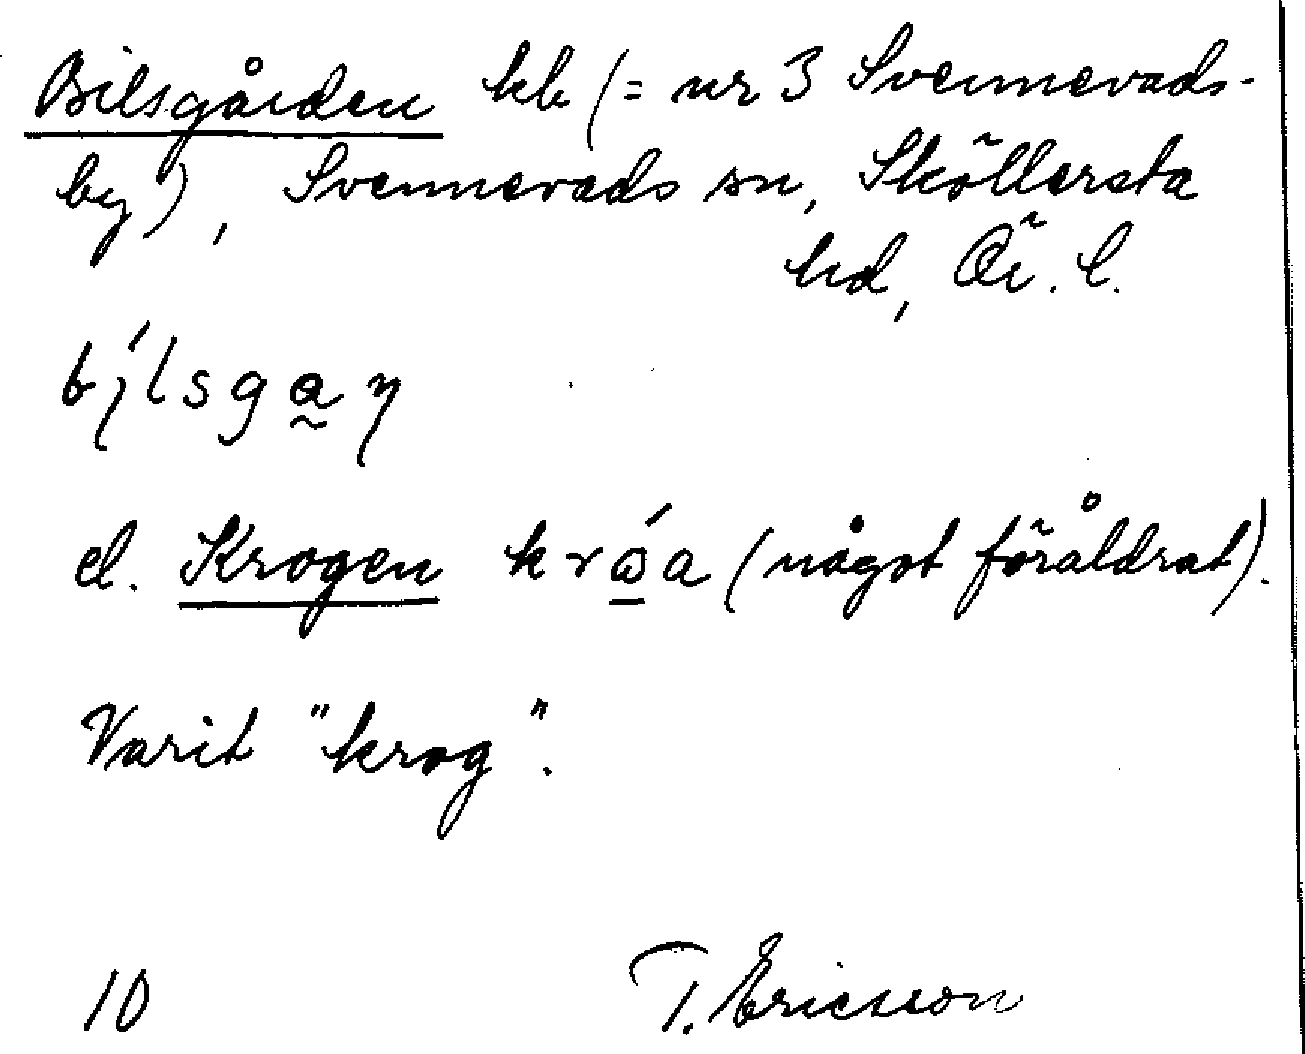 Bilsgården hb (= nr 3 Svennevads-
by), Svennevads sn, Sköllersta
hd, Ör. l.
bílsga̰ŋ
el. Krogen krώ̱a (något föråldrat).
Varit "krog".
10 T. Ericsson